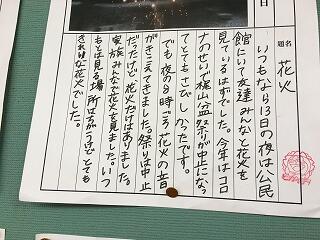 日
題名 花火
いつもなら13日の夜は公民
館にいて友達みんなと花火を
見ているはずでした。今年はコロ
ナのせいで梶山盆祭りが中止になっ
てとてもさびしかったです。
でも夜の8時ごろ花火の音
がきこえてきました。祭りは中止
だったけど、花火だけはありました。
家族みんなで花火を見ました。いつ
もとは見る場所はちがうけどとても
きれいな花火でした。